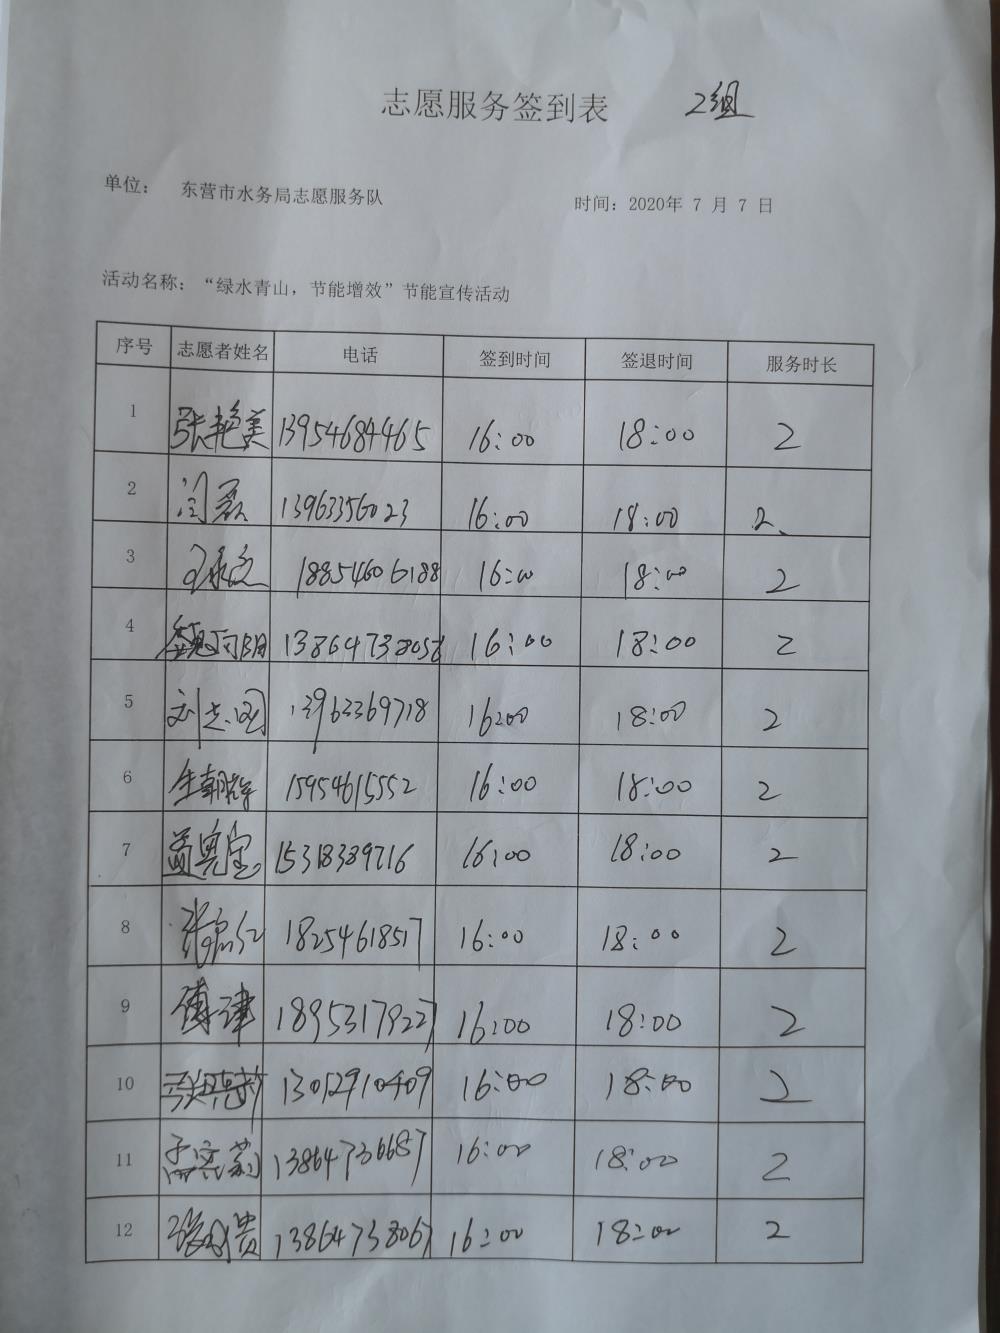 志愿服务签到表 2组
单位: 东营市水务局志愿服务队 时间: 2020年 7 月 7 日
活动名称: “绿水青山，节能增效”节能宣传活动
序号 志愿者姓名 电话 签到时间 签退时间 服务时长
1 张艳美 13954684465 16:00 18:00 2
2 闫磊 13963356023 16:00 18:00 2、
3 18854606188 16:00 18:00 2
4 13864738056 16:00 18:00 2
5 刘志国 13963369718 16:00 18:00 2
6 生朝晖 15954615552 16:00 18:00 2
7 15318389716 16:00 18:00 2
8 18254618517 16:00 18:00 2
9 傅津 18953179227 16:00 18:00 2
10 13012910409 16:00 18:00 2
11 13864736687 16:00 18:00 2
12 13864738067 16:00 18:00 2